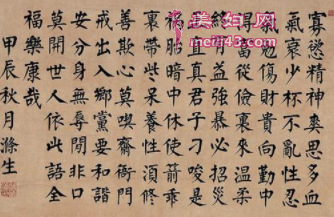 寡慾精神爽思多血
氣衰少杯不亂性忍
氣免傷財貴向勤中
得富從儉裏來溫柔
終益己強暴必招災
善處真君子刁唆是
禍胎暗中休使箭乖
裏帶些呆養性須修
善欺心莫喫齋衙門
戒出入鄉黨要和諧
安分身無辱閒非口
莫開世人依此語全
福樂康哉
甲辰秋月滌生
美妇网
meifu43.com